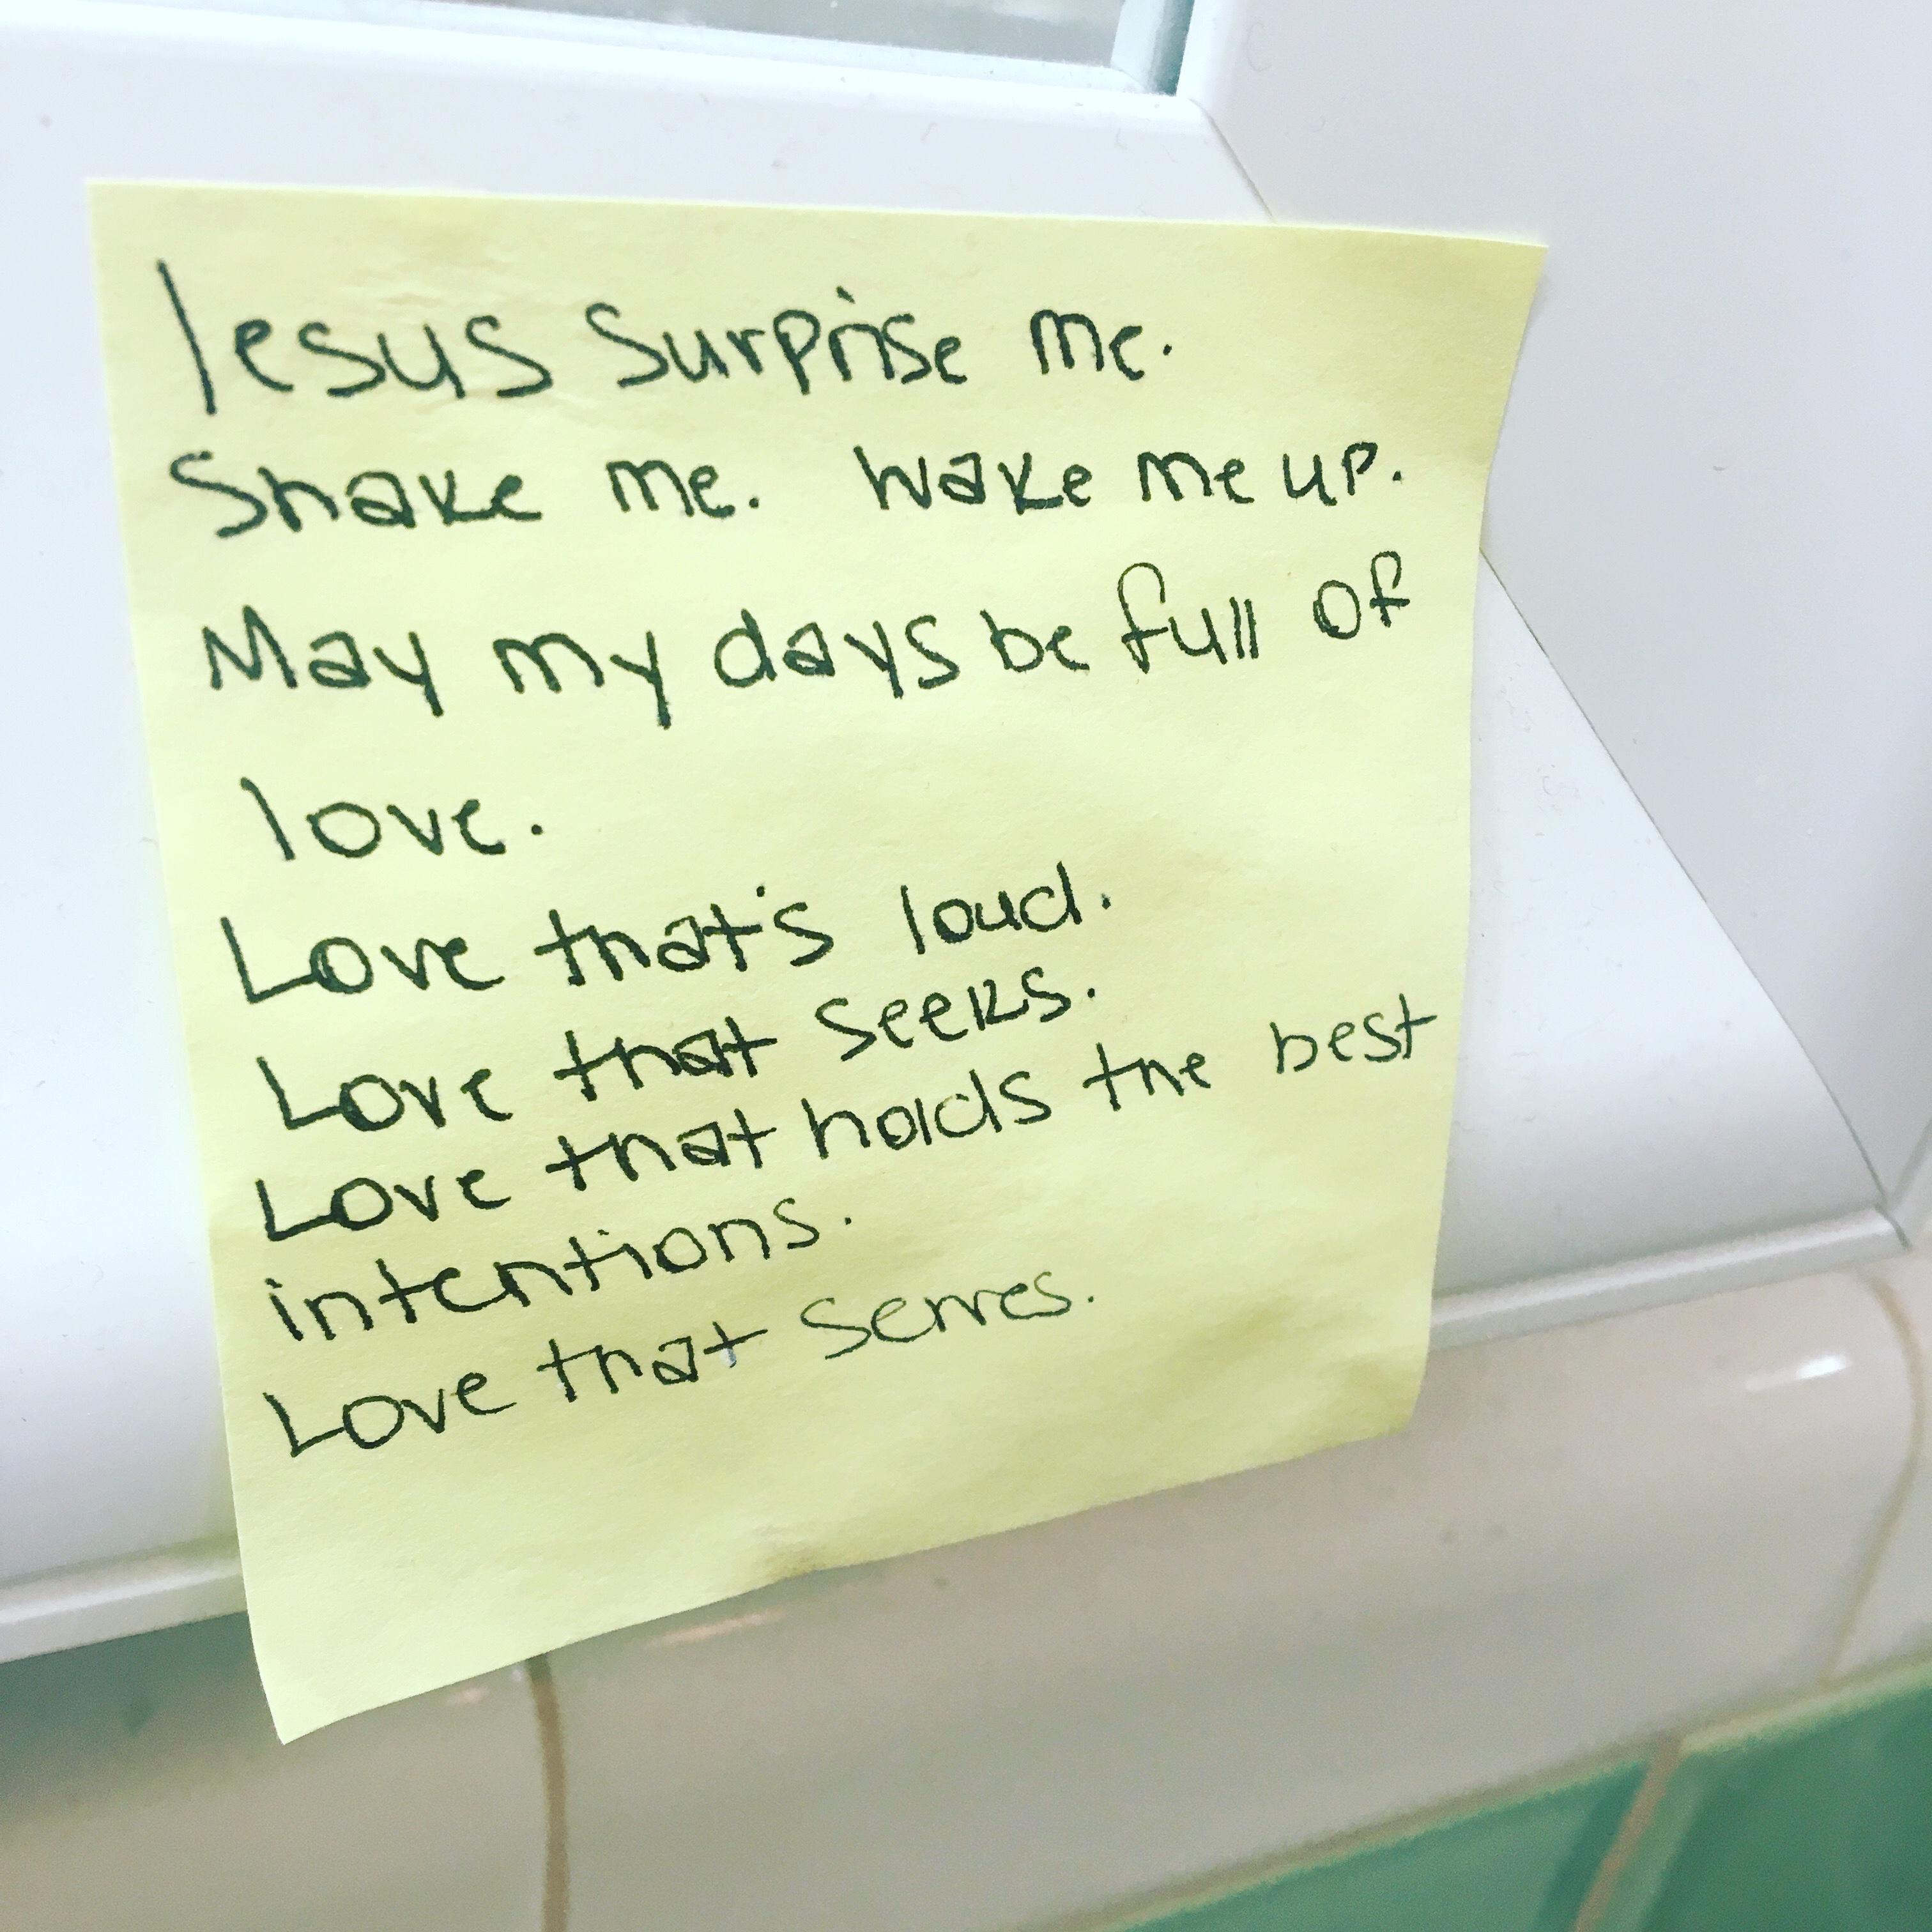 Jesus surprise me.
Shake me. Wake me up.
May my days be full of
love.
Love that's loud.
Love that seeks.
Love that holds the best
intentions.
Love that serves.